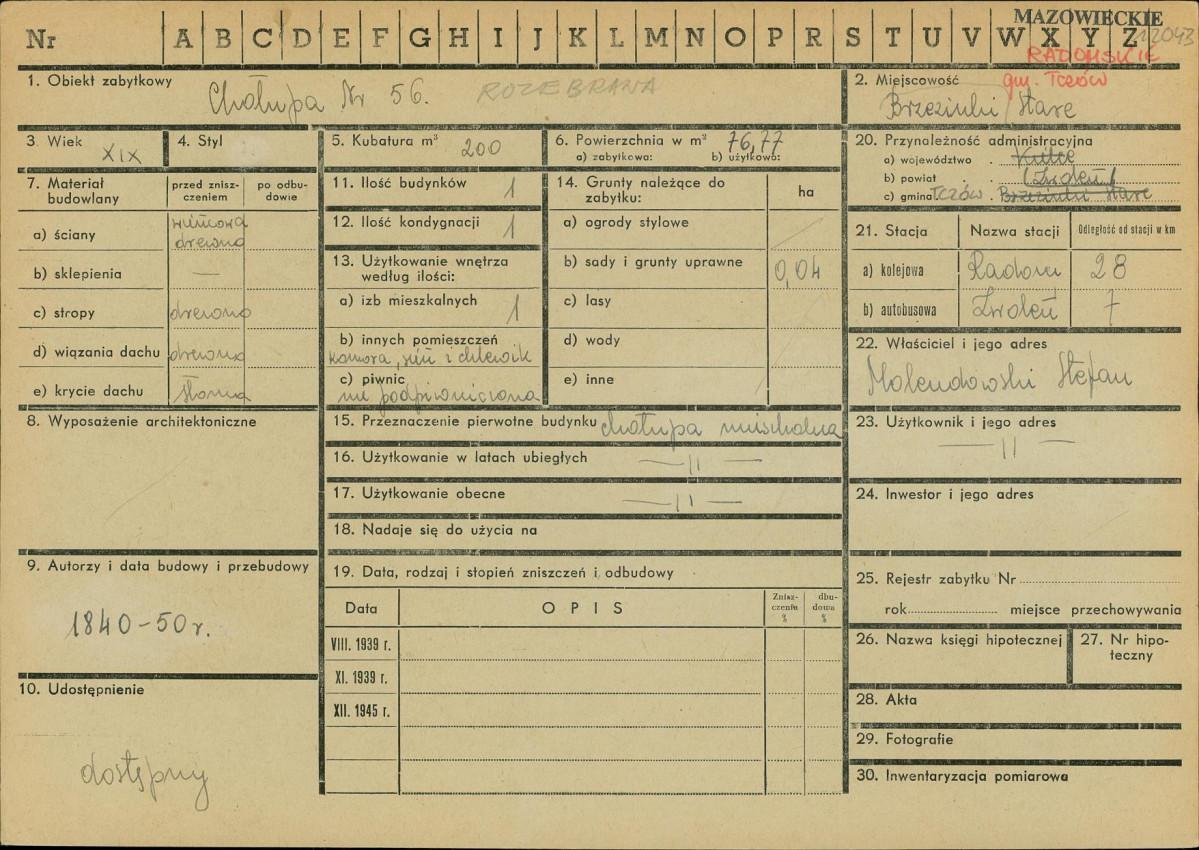 MAZOWIECKIE
Nr A B C D E F G H I J K L M N O P R S T U V W X Y Z 12043
RADOMSKIE
gm. Tczów
1. Obiekt zabytkowy
Chałupa Nr 56. ROZEBRANA
2. Miejscowość
Brzezinki Stare
3. Wiek XIX
4. Styl
5. Kubatura m³ 200
6. Powierzchnia w m² 76,77
a) zabytkowa: b) użytkowa:
20. Przynależność administracyjna
a) województwo . Kielce
b) powiat . . (Zwoleń)
c) gmina Tczów . Brzezinki Stare
7. Materiał budowlany
przed zniszczeniem
po odbudowie
a) ściany
drewno
b) sklepienia —
c) stropy drewno
d) wiązania dachu drewno
e) krycie dachu słoma
11. Ilość budynków 1
12. Ilość kondygnacji 1
13. Użytkowanie wnętrza według ilości:
a) izb mieszkalnych 1
b) innych pomieszczeń
komora, sień i chlewik
c) piwnic
nie podpiwniczona
14. Grunty należące do zabytku:
ha
a) ogrody stylowe
b) sady i grunty uprawne 0,04
c) lasy
d) wody
e) inne
21. Stacja
Nazwa stacji
Odległość od stacji w km
a) kolejowa Radom 28
b) autobusowa Zwoleń 7
22. Właściciel i jego adres
Molendowski Stefan
8. Wyposażenie architektoniczne
15. Przeznaczenie pierwotne budynku chałupa mieszkalna
16. Użytkowanie w latach ubiegłych —„—
17. Użytkowanie obecne —„—
18. Nadaje się do użycia na
23. Użytkownik i jego adres
—„—
24. Inwestor i jego adres
9. Autorzy i data budowy i przebudowy
1840-50 r.
10. Udostępnienie
dostępny
19. Data, rodzaj i stopień zniszczeń i odbudowy
Data
OPIS
Zniszczenia %
dbudowa %
VIII. 1939 r.
XI. 1939 r.
XII. 1945 r.
25. Rejestr zabytku Nr
rok miejsce przechowywania
26. Nazwa księgi hipotecznej
27. Nr hipoteczny
28. Akta
29. Fotografie
30. Inwentaryzacja pomiarowa